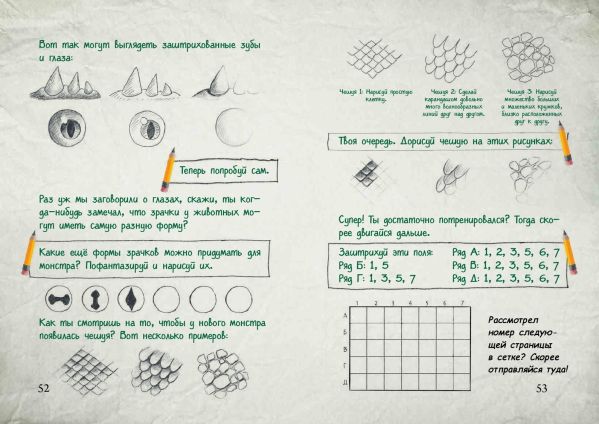 Вот так могут выглядеть заштрихованные зубы
и глаза:
Теперь попробуй сам.
Раз уж мы заговорили о глазах, скажи, ты ког-
да-нибудь замечал, что зрачки у животных мо-
гут иметь самую разную форму?
Какие ещё формы зрачков можно придумать для
монстра? Пофантазируй и нарисуй их.
Как ты смотришь на то, чтобы у нового монстра
появилась чешуя? Вот несколько примеров:
52
Чешуя 1: Нарисуй простую
клетку.
Чешуя 2: Сделай
карандашом довольно
много волнообразных
линий друг над другом.
Чешуя 3: Нарисуй
множество больших
и маленьких кружков,
близко расположенных
друг к другу.
Твоя очередь. Дорисуй чешую на этих рисунках:
Супер! Ты достаточно потренировался? Тогда ско-
рее двигайся дальше.
Заштрихуй эти поля:
Ряд А: 1, 2, 3, 5, 6, 7
Ряд Б: 1, 5
Ряд В: 1, 2, 3, 5, 6, 7
Ряд Г: 1, 3, 5, 7
Ряд Д: 1, 2, 3, 5, 6, 7
1 2 3 4 5 6 7
А
Б
В
Г
Д
Рассмотрел
номер следую-
щей страницы
в сетке? Скорее
отправляйся туда!
53